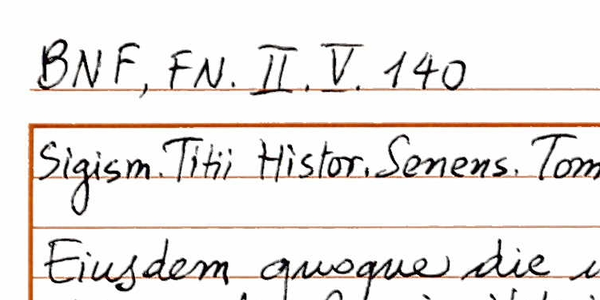 BNF, FN. II. V. 140
Sigism. Titii Histor. Senens. Tom
Eiusdem quoque die